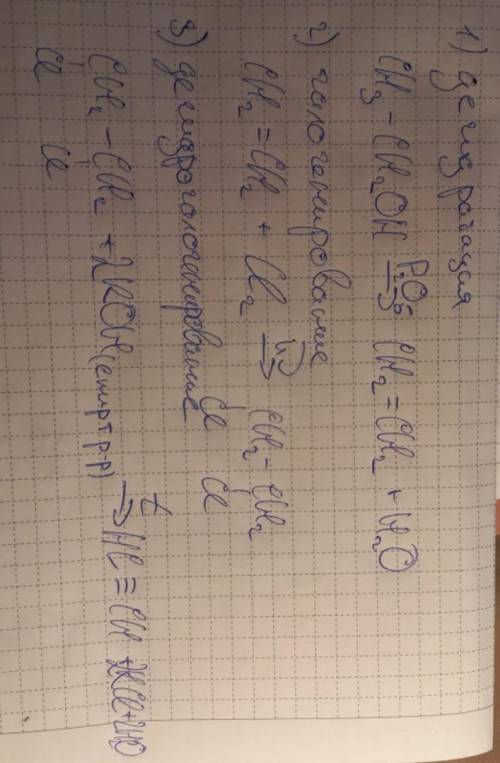 1) дегидратация
CH₃ - CH₂OH P₂O₅ → CH₂ = CH₂ + H₂O
2) галогенирование
CH₂ = CH₂ + Cl₂ → CH₂ - CH₂
Cl Cl
3) дегидрогалогенирование
CH₂ - CH₂ + 2KOH (спирт р-р) t → HC ≡ CH + 2KCl + 2H₂O
Cl Cl